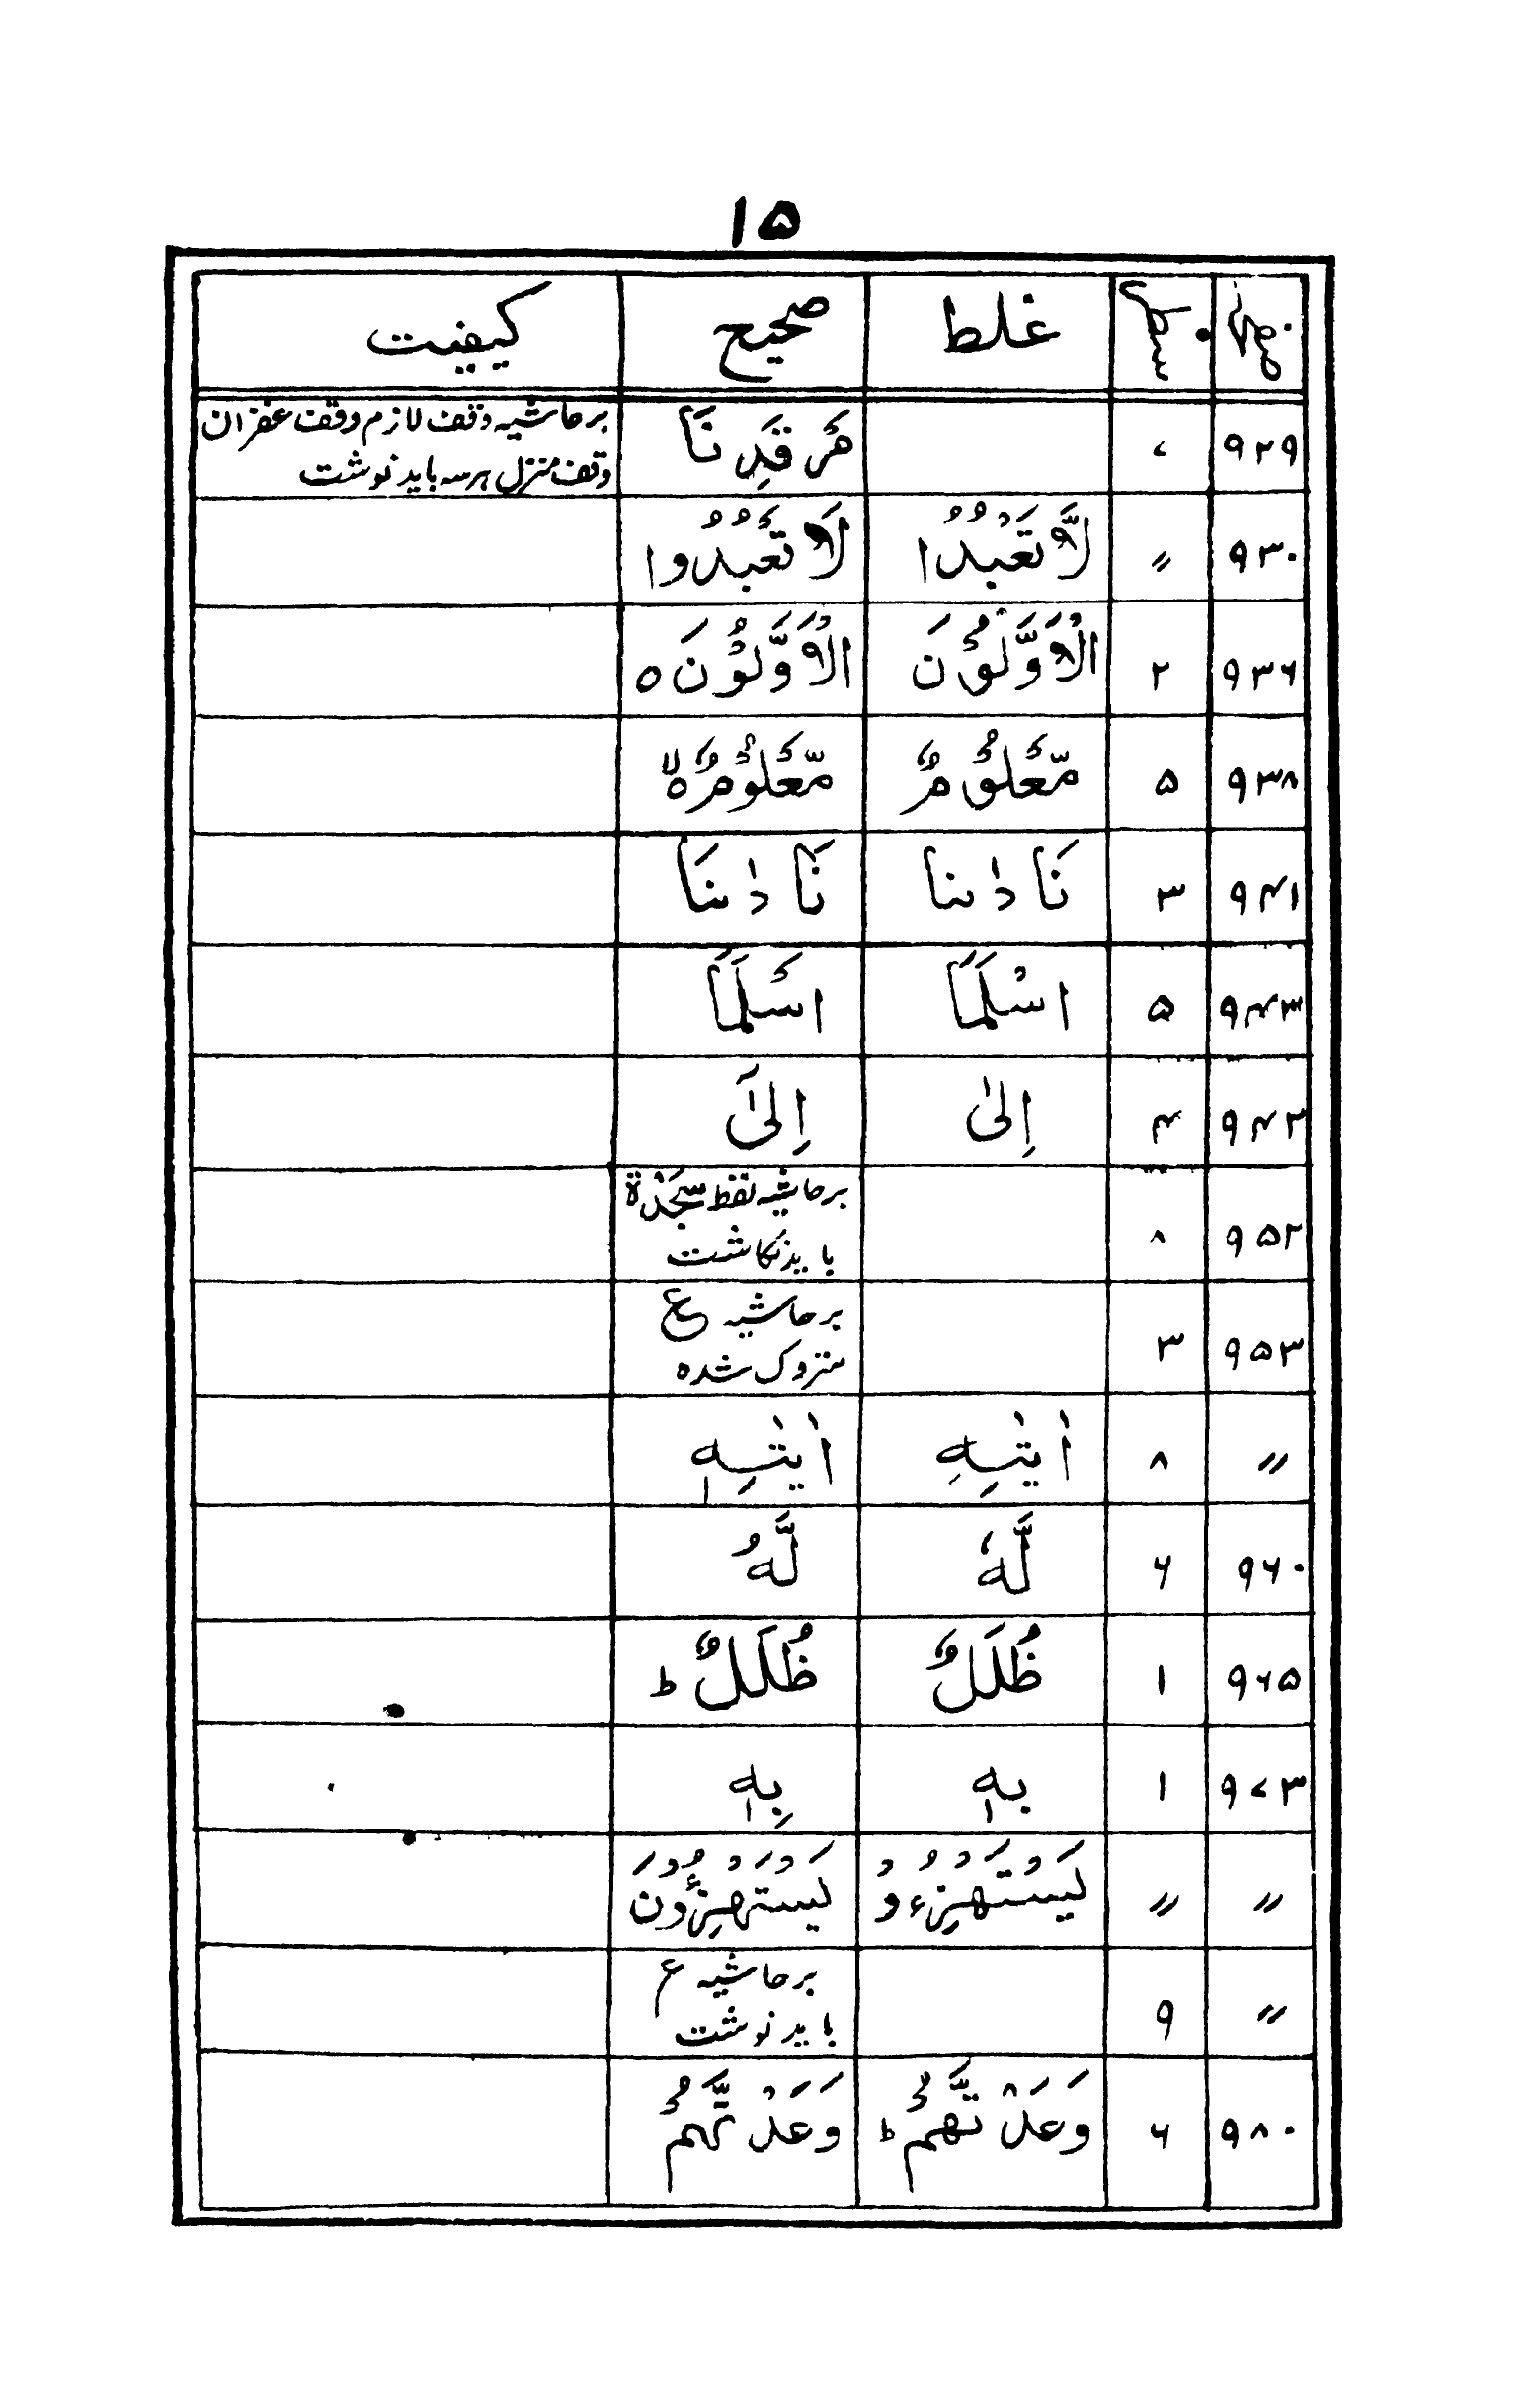 ۱۵
نمبر صفحہ سطر غلط صحیح کیفیت
۹۲۹ ۷ مَرْقَدِنَا برحاشیہ وقف لازم وقف غفران
وقف منزل ہرسہ باید نوشت
۹۳۰ 〃 لَّا تَعْبُدُا لَا تَعْبُدُوا
۹۳۶ ۲ الْاَوَّلُوْنَ الْاَوَّلُوْنَ ۵
۹۳۸ ۵ مَّعْلُوْمٌ مَّعْلُوْمٌ ۵ لا
۹۴۱ ۳ نَادٰىنا نَادٰىنَا
۹۴۳ ۵ اسْلَمَا اَسْلَمَا
۹۴۲ ۴ اِلىٰ اِلىٰٓ
۹۵۲ ۸ برحاشیہ نقط سَجْدَة
باید نگاشت
۹۵۳ ۳ برحاشیہ ع
متروک شدہ
〃 ۸ اٰیٰتِهِ اٰیٰتِهٖ
۹۶۰ ۶ لَّهٗ لَّهُ
۹۶۵ ۱ ظُلَلٌ ظُلَلٌ ط
۹۷۳ ۱ بهٖ بِهٖ
〃 〃 یَسْتَهْزِءُوْ یَسْتَهْزِءُوْنَ
〃 ۹ برحاشیہ ع
باید نوشت
۹۸۰ ۶ وَعَدْتَّهُمْ ط وَعَدْتَّهُمْ